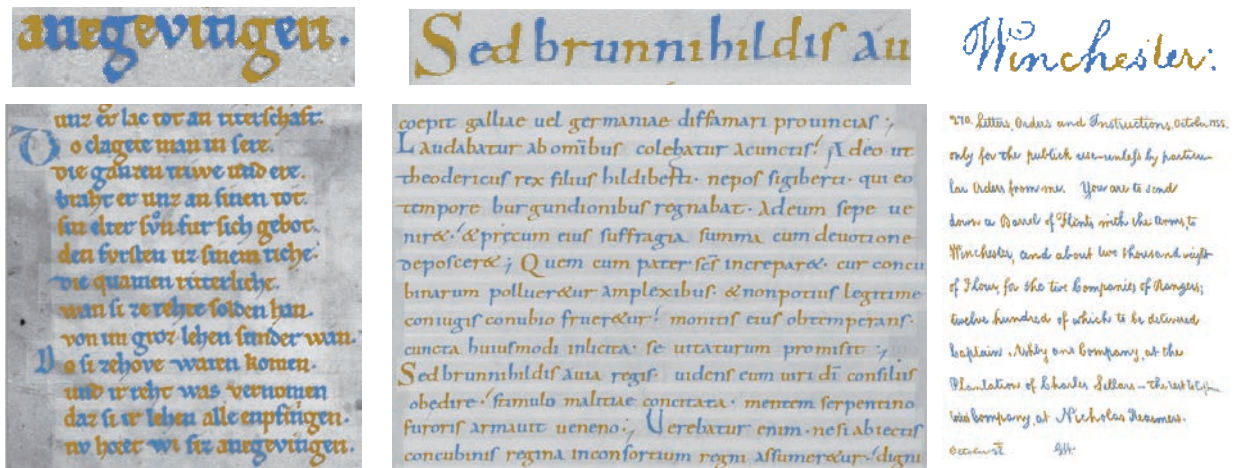 anegevingen.
Sed brunnihildis au
Winchester:
unz er lac tot an riterschaft.
Do clagete man in sere.
die ganzen triwe und ere.
braht er unz an sinen tot.
sin elter svn fur sich gebot.
den fvrsten uz sinem riche.
die quamen riterliche.
wan si ze rehte solden han.
von im groz lehen sunder wan.
Do si zehove waren komen.
und ir reht was vernomen
daz si ir lehen alle enpfingen.
nv hoert wi siz anegevingen.
coepit galliae uel germaniae diffamari prouincias;
Laudabatur ab omībus colebatur a cunctis! Adeo ut
theodericus rex filius hildiberti. nepos sigiberti. qui eo
tempore burgundionibus regnabat. Ad eum sepe ue
nir&! & precum eius suffragia summa cum deuotione
deposcer&; Quem cum pater scr̄ increpar&. cur concu
binarum polluer&ur amplexibus. & non potius legitime
coniugis conubio fruer&ur! monitis eius obtemperans.
cuncta huiusmodi inlicita. se uitaturum promisit;
Sed brunnihildis auia regis. uidens eum uiri dī consiliis
obedire! stimulo malitiae concitata. mentem serpentino
furoris armauit ueneno; Uerebatur enim. ne si abiectis
concubinis regina in consortium regni assumer&ur! digni
270. Letters, Orders and Instructions. October 1755.
only for the publick use—unless by particu-
lar Orders from me. You are to send
down a Barrel of Flints with the Arms, to
Winchester, and about two thousand weight
of Flour, for the two Companies of Rangers;
twelve hundred of which to be delivered
Captain Ashby and Company, at the
Plantation of Charles Sellars — the rest to Cap
Company, at Nicholas Reasmers.
October